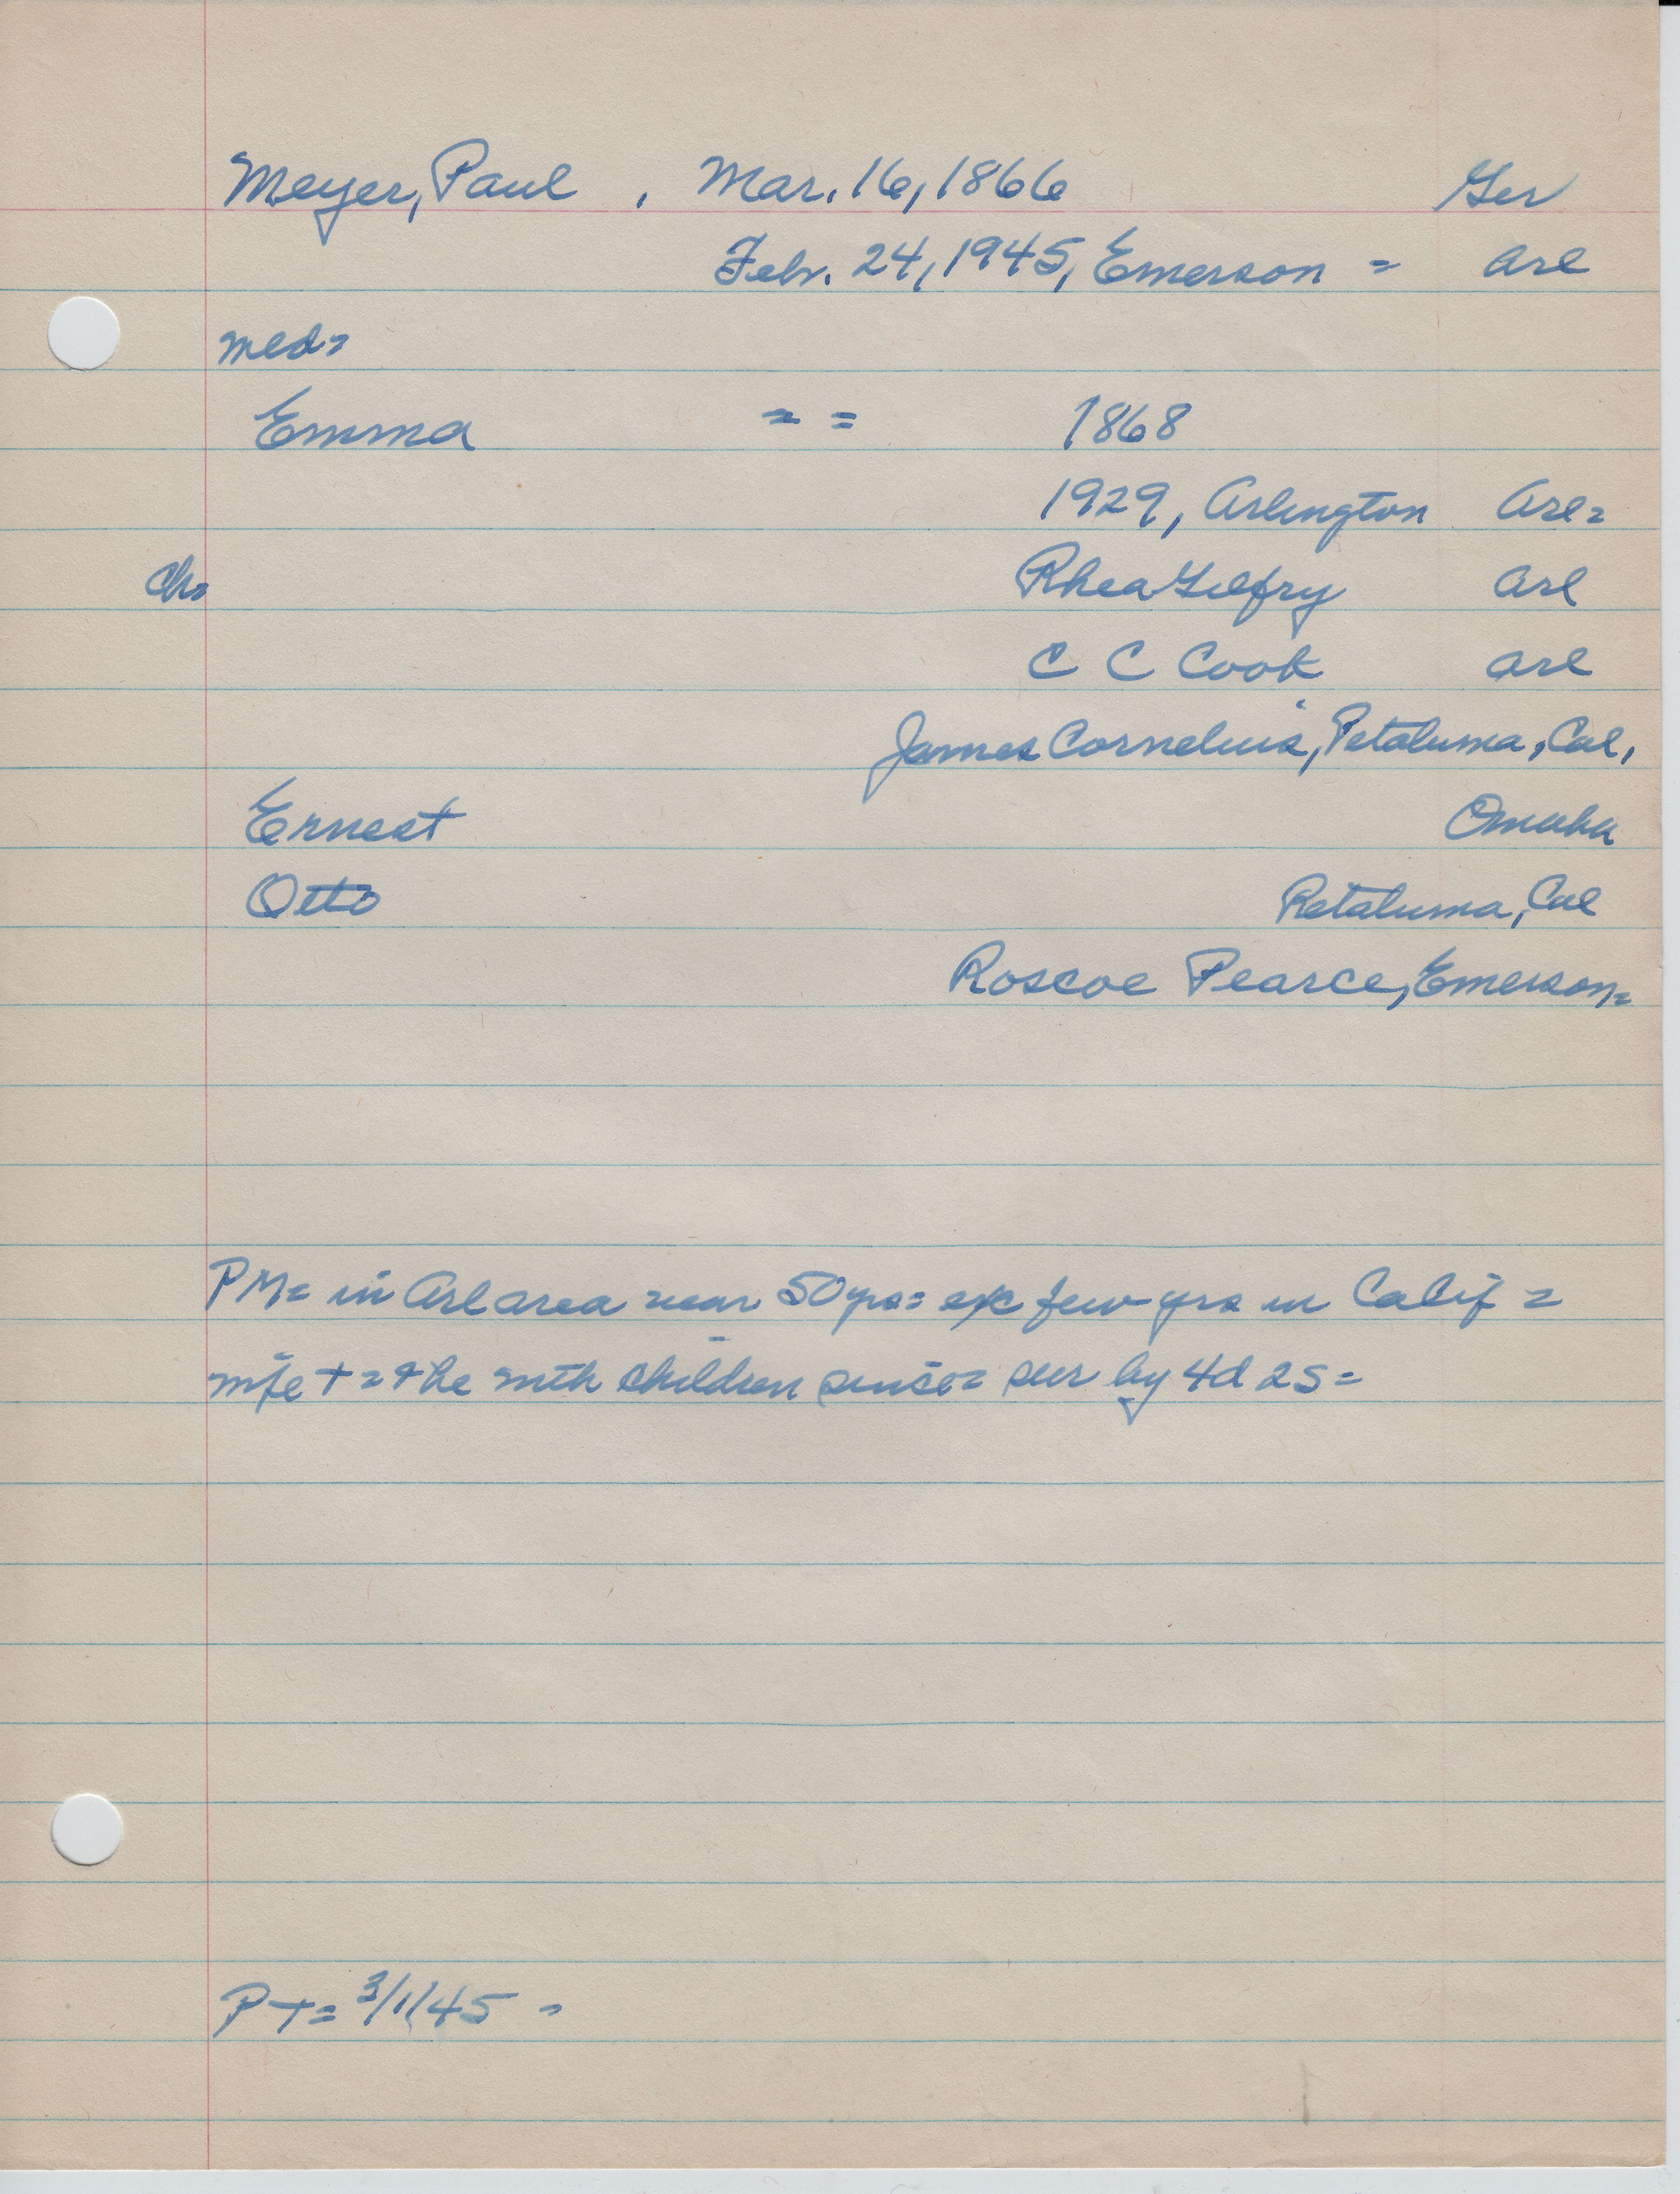 Meyer, Paul , Mar. 16, 1866 Ger
Feb. 24, 1945, Emerson = Arl
med=
Emma = = 1868
1929, Arlington Arl=
Ch= Rhea Gilfry Arl
C C Cook Arl
James Cornelius, Petaluma, Cal,
Ernest Omaha
Otto Petaluma, Cal
Roscoe Pearce, Emerson=
PM= in Arl area near 50 yrs= exc few yrs in Calif =
wife + = + he with children since= sur by 4d 2s=
PT= 3/1/45 =